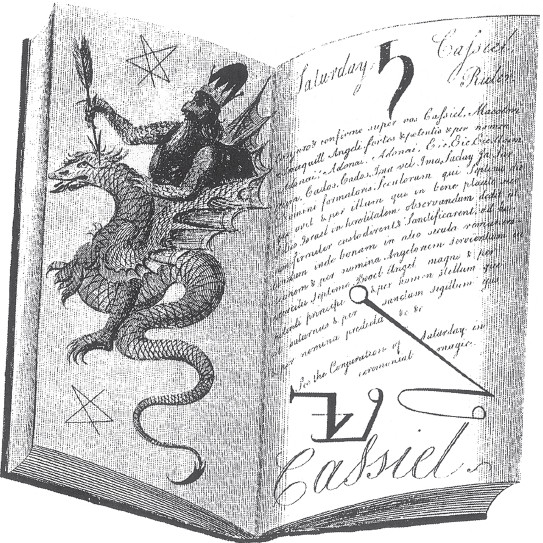 Saturday. ♄ Cassiel
Ruler
& confirmo super vos Cassiel, Macoton
Angeli fortes & potentis & per nomen
Adonai, Adonai, Adonai, Eie, Eie, Eie
Cados, Cados, Ima vel Ima, Saclay Ja Sar
formatoris Seculorum qui Septimo die
& per illum qui in bene placito suo
Israel in hereditatem observandum dedit ut
custoderent & Sanctificarent, ad
inde bonam in alio seculo
& per nomina Angelorum servientium in
Septimo Booel Angel magno & per
& per nomen stellum que
Saturnus & per sanctum segillum
per nomina predicta &c &c
For the Conjuration of Saturday in
ceremonial magic.
Cassiel